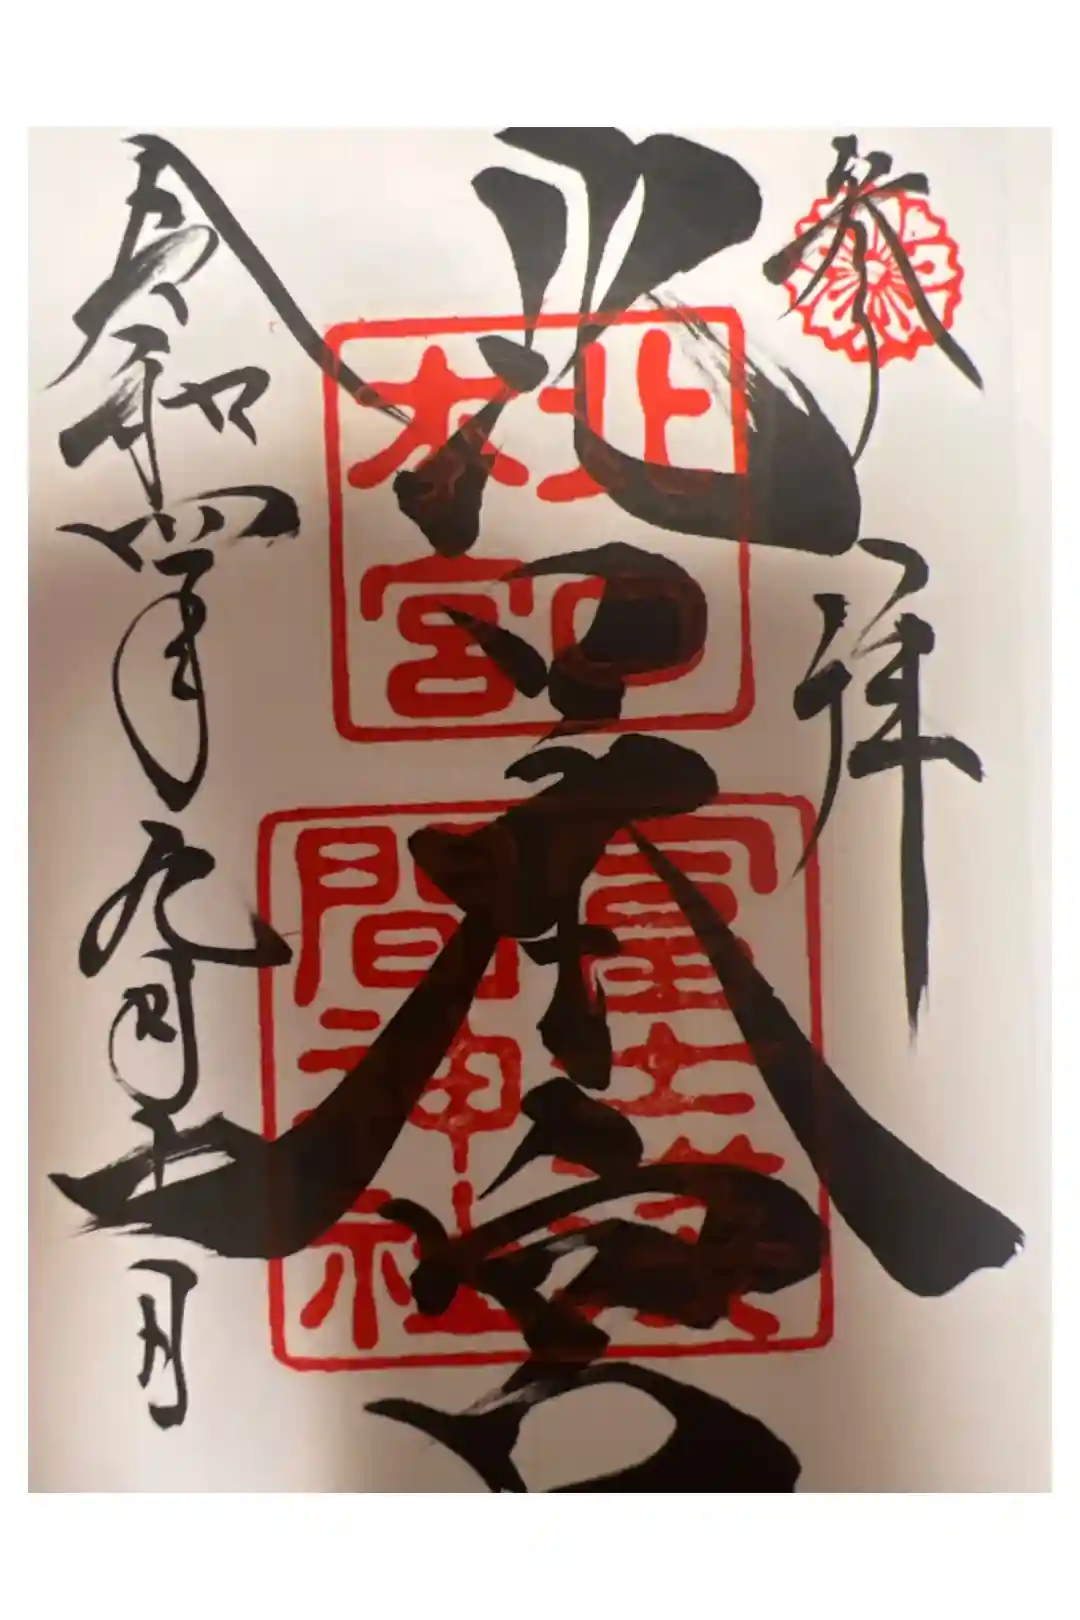 参拝
北口本宮
北口
本宮
冨士淺
間神社
令和四年九月十一日